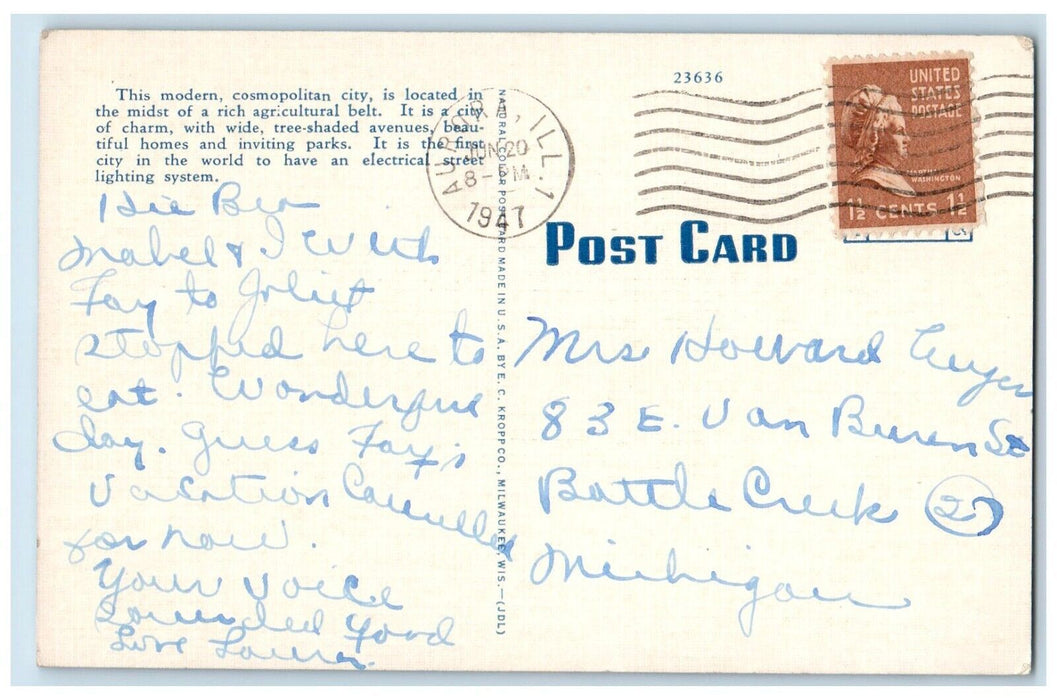 This modern, cosmopolitan city, is located in
the midst of a rich agricultural belt. It is a city
of charm, with wide, tree-shaded avenues, beau-
tiful homes and inviting parks. It is the first
city in the world to have an electrical street
lighting system.
Mabel & I with
Fay to Joliet
stopped here to
eat. Wonderful
day. Guess Fay's
Vacation Cancelled
for now.
Your voice
sounded good
Love
NATURAL COLOR POST CARD MADE IN U.S.A. BY E. C. KROPP CO., MILWAUKEE, WIS.—(JDL)
AURORA, ILL. 1
JUN 20
8-PM
1947
23636
UNITED
STATES
POSTAGE
MARTHA
WASHINGTON
1½ CENTS 1½
POST CARD
Mrs Howard
83 E. Van Buren St
Battle Creek 27
Michigan